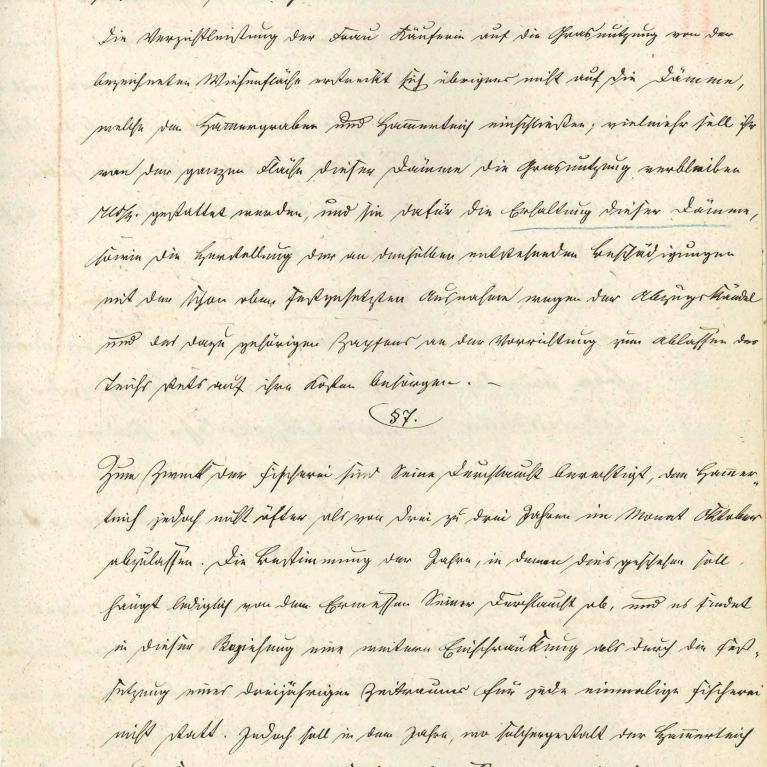 Die Verzichtleistung der Frau Käuferin auf die Grasnutzung von der
bezeichneten Wiesenfläche erstreckt sich übrigens nicht auf die Dämme,
welche den Hammergraben und Hammerteich einschließen; vielmehr soll ihr
von der ganzen Fläche dieser Dämme die Grasnutzung verbleiben
resp. gestattet werden, und sie dafür die Erhaltung dieser Dämme,
sowie die Herstellung der an denselben entstehenden Beschädigungen
mit der schon oben festgesetzten Ausnahme wegen der Abzugskändel
und des dazu gehörigen Zapfens an der Vorrichtung zum Ablassen des
Teichs stets auf ihre Kosten besorgen. –
§ 7.
Zum Zweck der Fischerei sind Seine Durchlaucht berechtigt, den Hammer-
teich jedoch nicht öfter als von drei zu drei Jahren im Monat Oktober
abzulassen. Die Bestimmung der Jahre, in denen dies geschehen soll
hängt lediglich von dem Ermessen Seiner Durchlaucht ab, und es findet
in dieser Beziehung eine weitere Einschränkung als durch die Fest-
setzung eines dreijährigen Zeitraums für jede einmalige Fischerei
nicht statt. Jedoch soll in dem Jahre, wo solchergestalt der Hammerteich